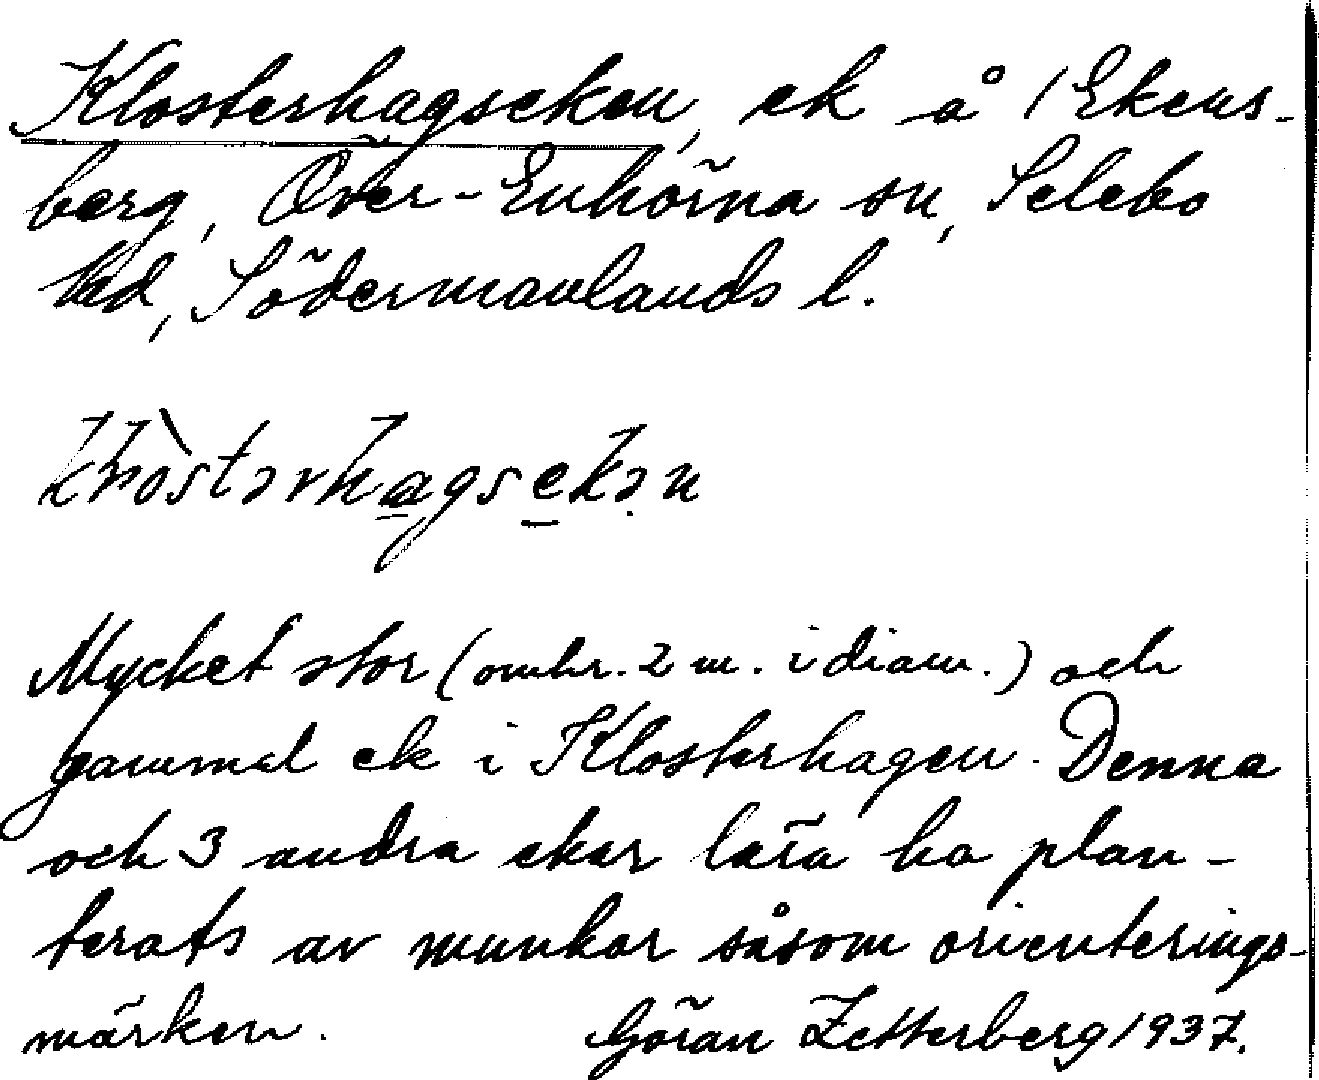 Klosterhagseken, ek å 1 Ekens-
berg, Över-Enhörna sn, Selebo
hd, Södermanlands l.
Mycket stor (omkr. 2 m. i diam.) och
gammal ek i Klosterhagen. Denna
och 3 andra ekar lära ha plan-
terats av munkar såsom orienterings-
märken. Göran Zetterberg 1937.